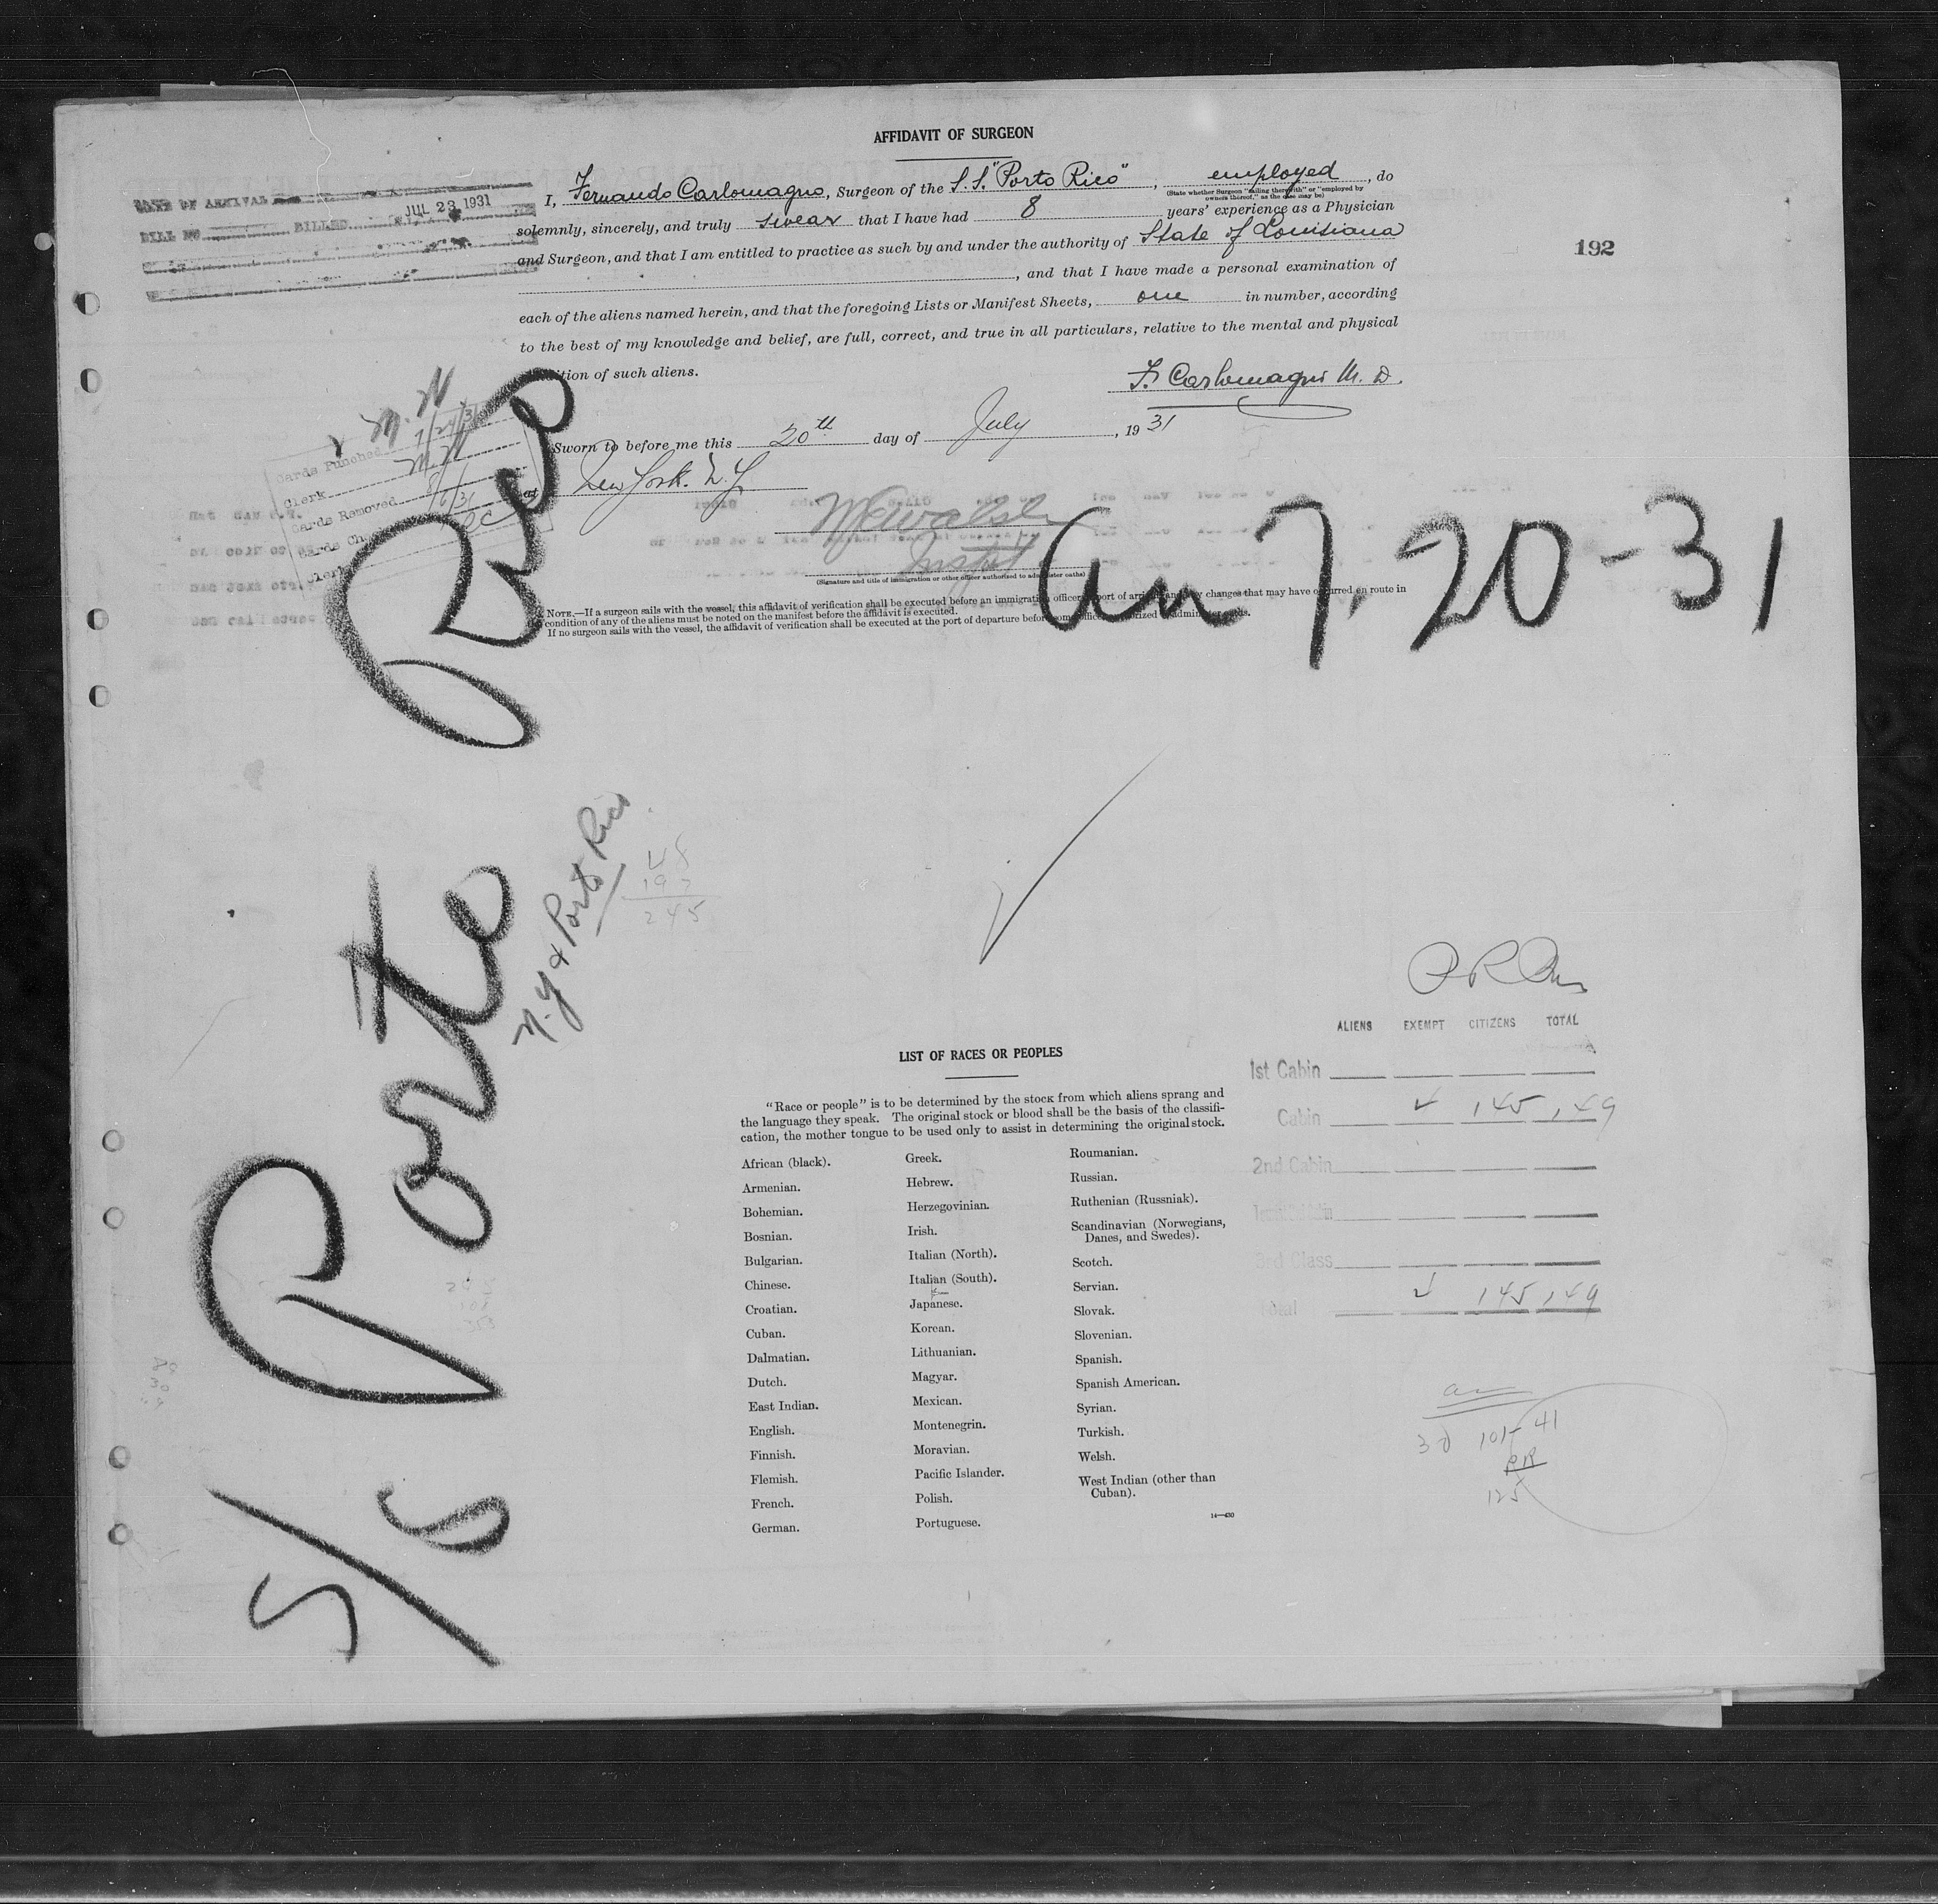 AFFIDAVIT OF SURGEON
I, Fernando Carlomagno, Surgeon of the S.S. "Porto Rico", employed, do
(State whether Surgeon "sailing therewith" or "employed by owners thereof," as the case may be)
solemnly, sincerely, and truly swear that I have had 8 years' experience as a Physician
and Surgeon, and that I am entitled to practice as such by and under the authority of State of Louisiana
, and that I have made a personal examination of
each of the aliens named herein, and that the foregoing Lists or Manifest Sheets, one in number, according
to the best of my knowledge and belief, are full, correct, and true in all particulars, relative to the mental and physical
ition of such aliens.
F. Carlomagno M. D.
Sworn to before me this 20th day of July, 1931
at New York. N.Y.
Inspt
(Signature and title of immigration or other officer authorized to administer oaths)
NOTE.—If a surgeon sails with the vessel, this affidavit of verification shall be executed before an immigration officer port of any changes that may have occurred en route in
condition of any of the aliens must be noted on the manifest before the affidavit is executed.
If no surgeon sails with the vessel, the affidavit of verification shall be executed at the port of departure before
DATE OF ARRIVAL
BILL NO BILLED JUL 23 1931
192
Cards Punched 7/24/31
Clerk M.W.
Cards Removed 8/6/31
Cards Ch
Clerk
S/S Porto Rico
Arr 7.20-31
N.Y & Porto Rico
48
197
245
ALIENS EXEMPT CITIZENS TOTAL
1st Cabin
Cabin 4 145 149
2nd Cabin
3rd Class
Total 4 145 149
3d 101- 41
PR
125
LIST OF RACES OR PEOPLES
"Race or people" is to be determined by the stock from which aliens sprang and
the language they speak. The original stock or blood shall be the basis of the classifi-
cation, the mother tongue to be used only to assist in determining the original stock.
African (black).
Armenian.
Bohemian.
Bosnian.
Bulgarian.
Chinese.
Croatian.
Cuban.
Dalmatian.
Dutch.
East Indian.
English.
Finnish.
Flemish.
French.
German.
Greek.
Hebrew.
Herzegovinian.
Irish.
Italian (North).
Italian (South).
Japanese.
Korean.
Lithuanian.
Magyar.
Mexican.
Montenegrin.
Moravian.
Pacific Islander.
Polish.
Portuguese.
Roumanian.
Russian.
Ruthenian (Russniak).
Scandinavian (Norwegians,
Danes, and Swedes).
Scotch.
Servian.
Slovak.
Slovenian.
Spanish.
Spanish American.
Syrian.
Turkish.
Welsh.
West Indian (other than
Cuban).
14—430